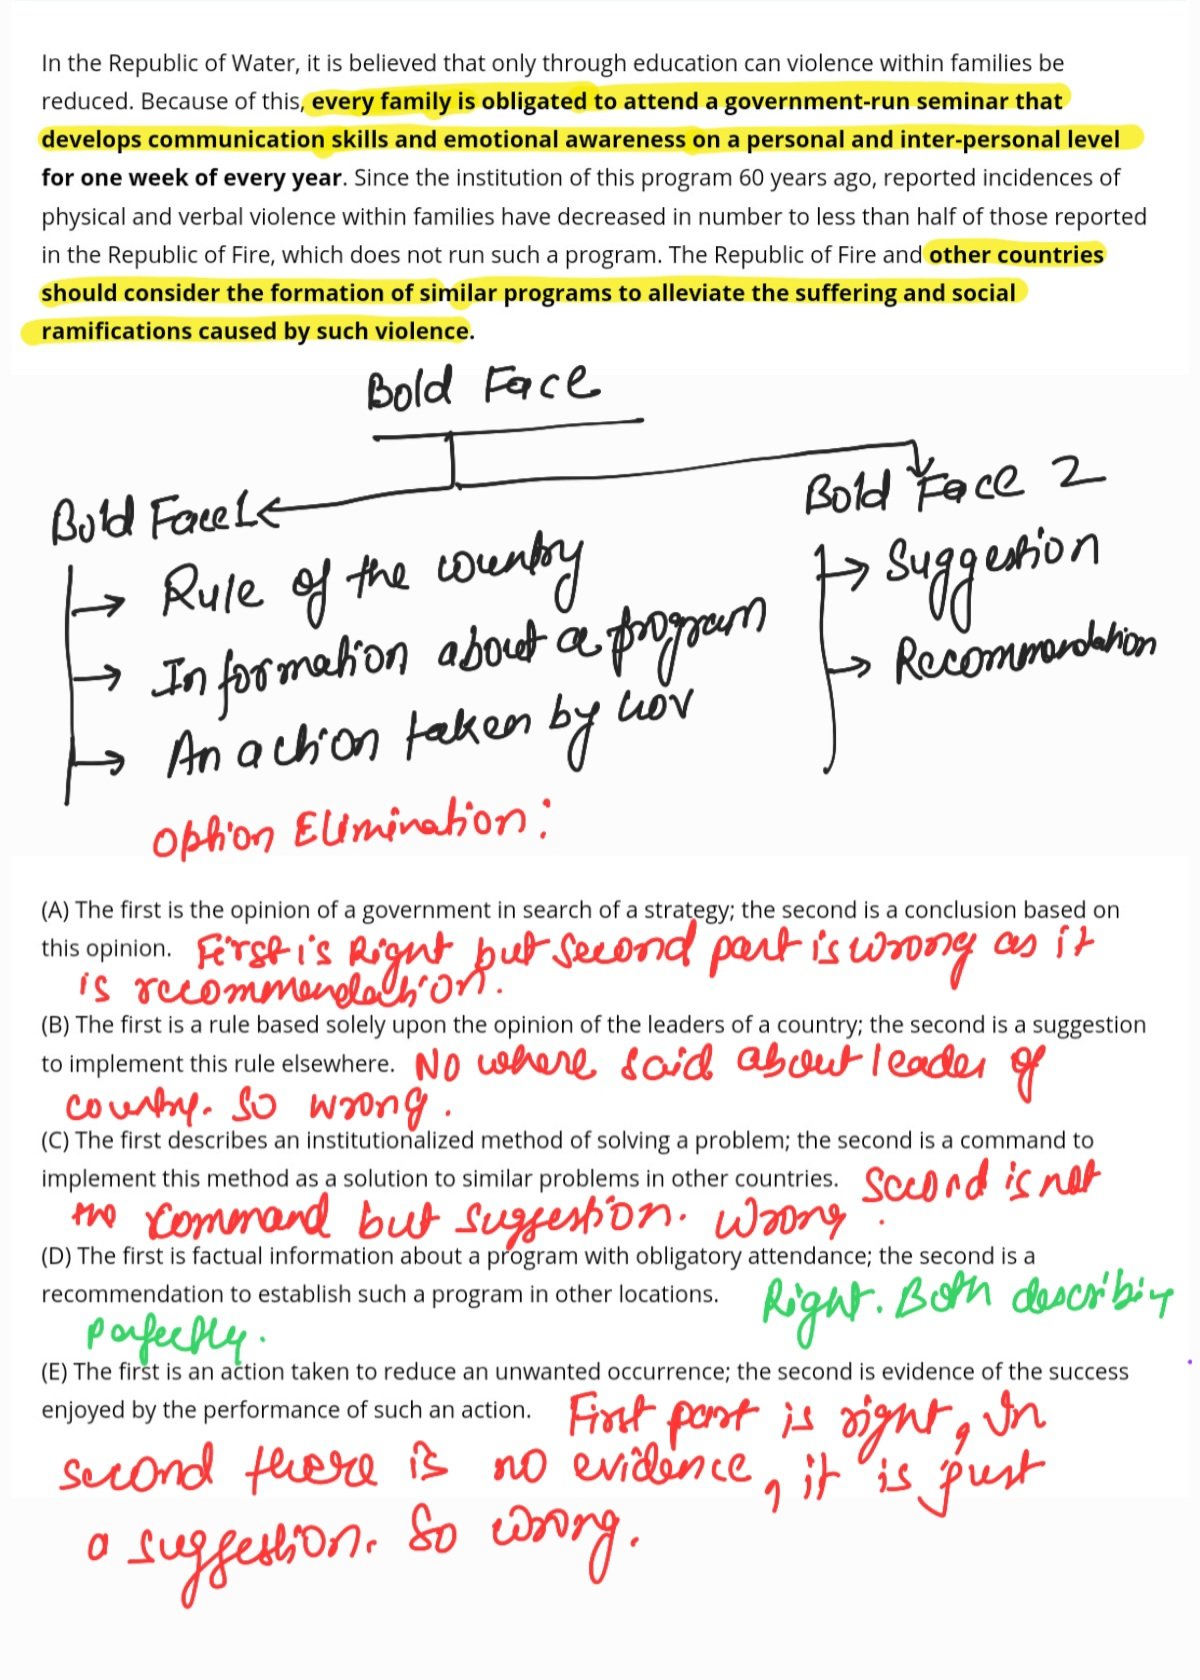 In the Republic of Water, it is believed that only through education can violence within families be
reduced. Because of this, every family is obligated to attend a government-run seminar that
develops communication skills and emotional awareness on a personal and inter-personal level
for one week of every year. Since the institution of this program 60 years ago, reported incidences of
physical and verbal violence within families have decreased in number to less than half of those reported
in the Republic of Fire, which does not run such a program. The Republic of Fire and other countries
should consider the formation of similar programs to alleviate the suffering and social
ramifications caused by such violence.
Bold Face
Bold Face 1
Rule of the country
Information about a program
An action taken by Gov
Bold Face 2
Suggestion
Recommendation
Option Elimination:
(A) The first is the opinion of a government in search of a strategy; the second is a conclusion based on
this opinion. First is Right but second part is wrong as it
is recommendation.
(B) The first is a rule based solely upon the opinion of the leaders of a country; the second is a suggestion
to implement this rule elsewhere. No where said about leader of
country. So wrong.
(C) The first describes an institutionalized method of solving a problem; the second is a command to
implement this method as a solution to similar problems in other countries. Second is not
the command but suggestion. Wrong.
(D) The first is factual information about a program with obligatory attendance; the second is a
recommendation to establish such a program in other locations. Right. Both describing
perfectly.
(E) The first is an action taken to reduce an unwanted occurrence; the second is evidence of the success
enjoyed by the performance of such an action. First part is right, In
second there is no evidence, it is just
a suggestion. So wrong.